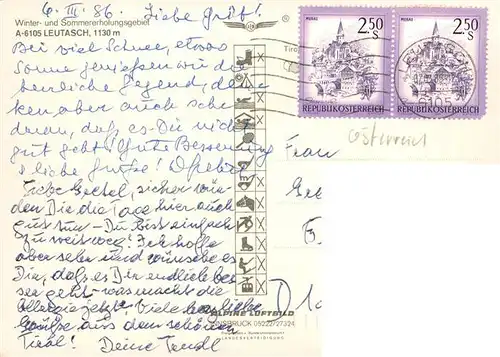 6. III. 86. Liebe Gretl!
Winter- und Sommererholungsgebiet
A-6105 LEUTASCH, 1130 m
Bei viel Schnee, etwas
Sonne genießen wir die
herrliche Gegend, den-
ken aber auch sehr
daran, daß es Dir nicht
gut geht! Gute Besserung
u liebe Grüße!
Liebe Gretel, sicher wür-
den Dir die Tage hier auch
gut tun - Du bist einfach
zu weit weg! Ich hoffe
aber sehr und wünsche es
Dir, daß es Dir endlich bes-
ser geht - was macht die
Allergie jetzt? Viele herzliche
Grüße aus dem schönen
Tirol! Deine Trudl
Tirol
MURAU 2.50 S
REPUBLIK ÖSTERREICH
MURAU 2.50 S
REPUBLIK ÖSTERREICH
Österreich
Frau
Gre
F
D
ALPINE LUFTBILD
INNSBRUCK 05222/27324